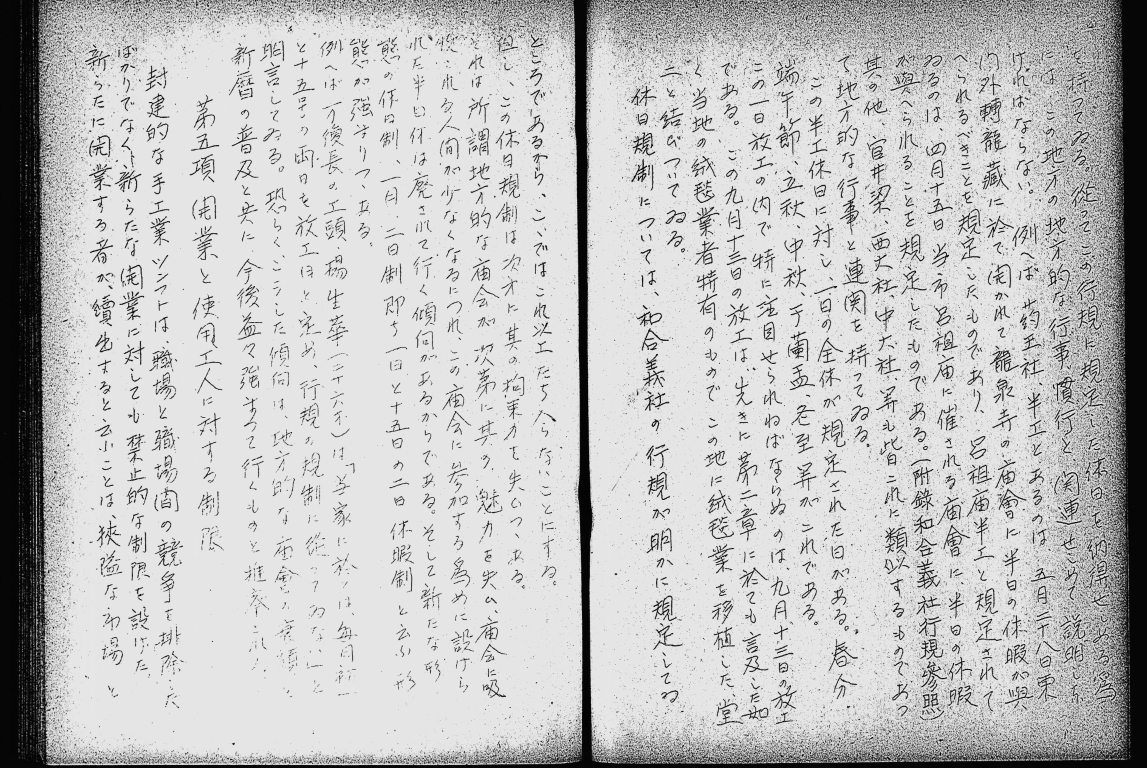 を持つてゐる。従つてこの行規に規定した休日を納得せしめる為
には、この地方の地方的な行事、慣行と関連せしめて説明しな
ければならない。例へば、葯王社、半工とあるのは、五月二十八日東
門外轉龍藏に於て開かれて龍泉寺の庙會に半日の休暇が與
へられるべきことを規定したものであり、呂祖庙半工と規定されて
ゐるのは、四月十五日当市呂祖庙に催される庙會に半日の休暇
が與へられることを規定したものである。(附錄和合義社行規參照)
其の他、宮井梁、西大社、中大社、昇も皆これに類似するものであつ
て地方的な行事と連関を持つてゐる。
この半工休日に対し、一日の全休が規定された日がある。春分、
端午節、立秋、中秋、于蘭盃、冬至昇がこれである。
この一日放工の内で特に注目せられねばならぬのは、九月十三日の放工
である。この九月十三日の放工は、先きに第二章に於ても言及した如
く当地の絨毯業者特有のものでこの地に絨毯業を移植した堂
二と結びついてゐる。
休日規制については、和合義社の行規が明かに規定してゐ
ところであるから、こゝではこれ以上たち入らないことにする。
但し、この休日規制は次才に其の拘束力を失ひつゝある。
それは所謂地方的な庙会が次第に其の魅力を失ひ、庙会に吸
收される人間が少なくなるにつれ、この庙会に参加する為めに設けら
れた半日休は廃されて行く傾向があるからである。そして新たな形
態の休日制、一日、二日制即ち一日と十五日の二日休暇制と云ふ形
態が強まりつゝある。
例へば万優長の工頭楊生華(二十六才)は「当家に於ては毎月
と十五号の両日を放工日と定め、行規の規制に従つてゐない」と
明言してゐる。恐らく、こうした傾向は、地方的な庙會の衰頽と
新暦の普及と共に、今後益々強まつて行くものと推察
第五項 開業と使用工人に対する制限
封建的な手工業ツンフトは、職場と職場間の競争を排除した
ばかりでなく、新らたな開業に対しても禁止的な制限を設けた。
新らたに開業する者が、續出すると云ふことは、狹隘な市場と